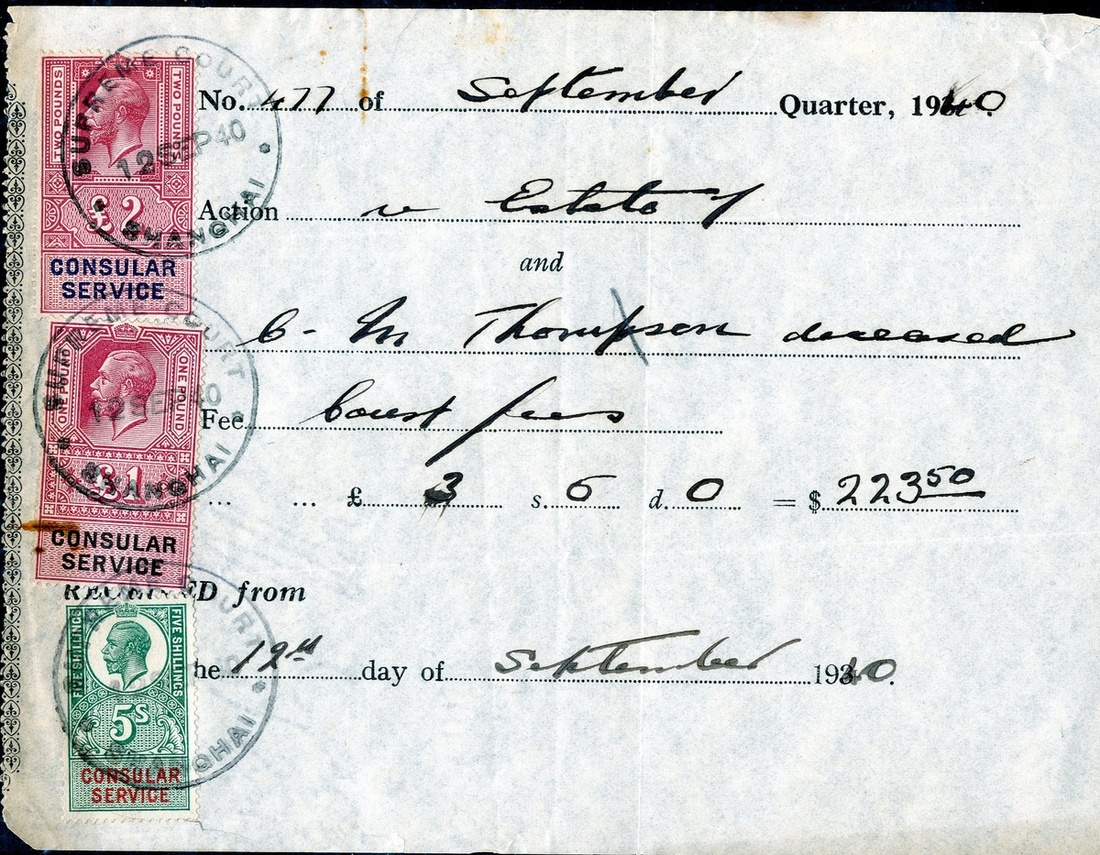 TWO POUNDS TWO POUNDS
£2
CONSULAR
SERVICE
SUPREME COURT
12 SEP 40
SHANGHAI
No. 477 of September Quarter, 1940.
Action Estate of
and
C - M Thompson deceased
ONE POUND ONE POUND
£1
CONSULAR
SERVICE
SUPREME COURT
12 SEP 40
SHANGHAI
Fee Court fees
... ... £ 3 s. 6 d. 0 = $ 223 50
RECEIVED from
FIVE SHILLINGS FIVE SHILLINGS
5S
CONSULAR
SERVICE
COURT
SHANGHAI
he 12th day of September 1940.